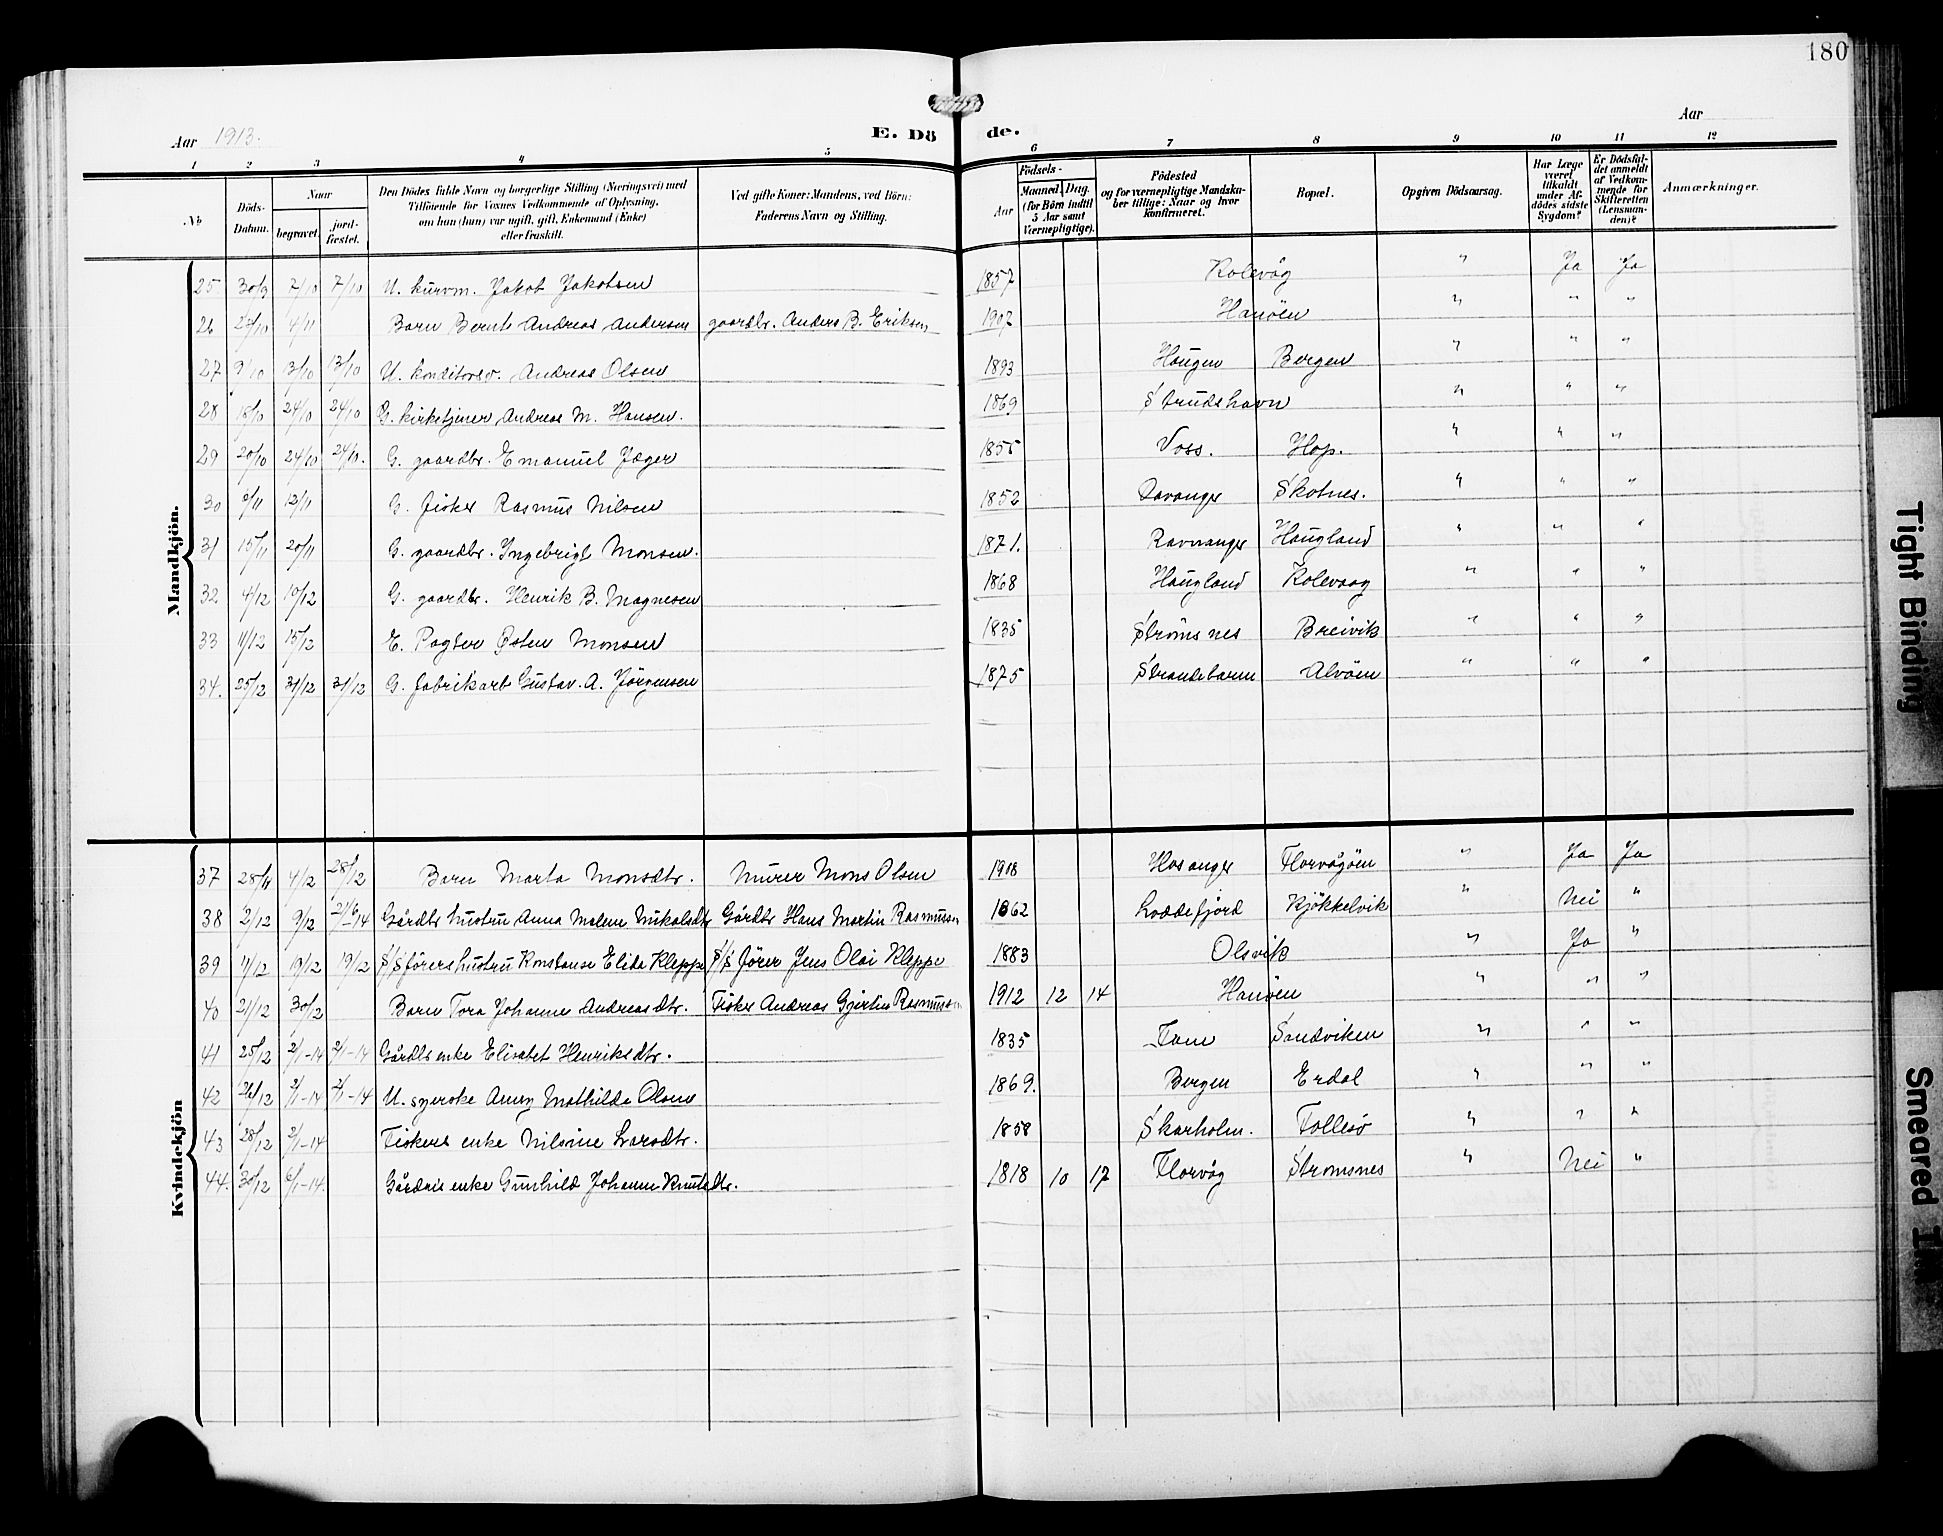 180
Aar 1913.
E. Dö
de.
Aar
1 2 3 4 5 6 7 8 9 10 11 12
No
Döds-Datum.
Naar
begravet.
jord-fæstet.
Den Dödes fulde Navn og borgerlige Stilling (Næringsvei) med
Tilföiende for Voxnes Vedkommende af Oplysning,
om han (hun) var ugift, gift, Enkemand (Enke)
eller fraskilt.
Ved gifte Koner: Mandens, ved Börn:
Faderens Navn og Stilling.
Födsels-
Aar
Maaned. Dag.
(for Börn indtil
5 Aar samt
Værnepligtige).
Födested
og for værnepligtige Mandska-
ber tillige: Naar og hvor
konfirmeret.
Bopæl.
Opgiven Dödsaarsag.
Har Læge
været
tilkaldt
under Af-
dødes sidste
Sygdom?
Er Dödsfal-
det anmeldt
af Vedkom-
mende for
Skifteretten
(Lensman-
den)?
Anmærkninger.
Mandkjön.
25 30/9 7/10 7/10 U. kurvm. Jakob Jakobsen 1857 Kolevåg " Ja Ja
26 4/11 Barn Bernt Andreas Andersen gaardbr. Anders B. Eriksen 1907 Hanöen " " "
27 9/10 13/10 13/10 U. konditorsv. Andreas Olsen 1893 Haugen Bergen " " "
28 18/10 24/10 24/10 G. kirketjener Andreas M. Hansen. 1869 Strudshavn " " "
29 20/10 24/10 24/10. G. gaardbr. Emanuel Jæger 1855 Voss. Hop. " " "
30 12/11 G. fisker Rasmus Nilsen 1852 Davanger Skotnes. " " "
31 15/11 20/11 G. gaardbr. Ingebrigt Monsen. 1871. Ravnanger Haugland " " "
32 4/12 10/12 G. gaardbr. Henrik B. Magnesen 1868 Haugland Kolevaag " " "
33 11/12 15/12 E. Pagter Østen Monsen 1835 Strömsnes Breivik " " "
34. 25/12 31/12 31/12 G. fabrikarb Gustav. A. Jørgensen 1875 Strandebarm Alvöen " " "
Kvindekjön
37 28/11 4/12 28/12 Barn Marta Monsdtr. Murer Mons Olsen 1908 Hosanger Florvågöen " Ja Ja
38 2/12 9/12 21/6 14 Gårdbr hustru Anna Malene Nikolsdtr Gårdbr Hans Martin Rasmussen 1862 Loddefjord Kjøkkelvik " Nei "
39 11/12 19/12 19/12 S/S förers hustru Konstanse Elida Kleppe S/S förer Jens Olai Kleppe 1883 Olsvik " Ja "
40 21/12 30/12 Barn Tora Johanne Andreasdtr. Fisker Andreas Gjertin Rasmussen 1912 12 14 Hanöen " " "
41 25/12 2/1-14 2/1-14 Gårdbr enke Elisabet Henriksdtr. 1835 Fane Sandviken " " "
42 26/12 2/1-14 2/1-14 U. syerske Anny Mathilde Olsen 1869. Bergen Erdal " " "
43 28/12 2/1-14 Fiskers enke Nilsine Larsdtr. 1858 Skarholm. Follesö " " "
44. 30/12 6/1-14. enke Gunhild Johanne Knutsdtr. 1818 10 17 Florvåg Strømsnes " Nei "
Tight Binding
Smeared